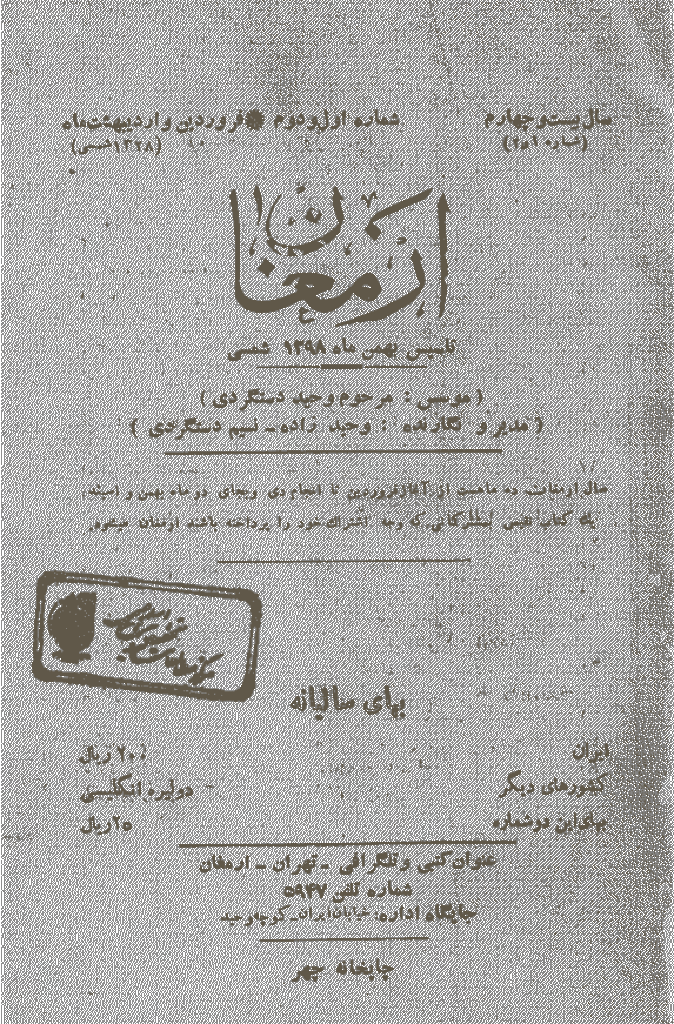 سال بیست و چهارم
شماره اول و دوم فروردین و اردیبهشت ماه
(شماره ۱ و ۲)
(۱۳۲۸ شمسی)
ارمغان
تاسیس بهمن ماه ۱۲۹۸ شمسی
( موسس : مرحوم وحید دستگردی )
( مدیر و نگارنده : وحید زاده ـ نسیم دستگردی )
سال ارمغان ده ماهست از آغاز فروردین تا انجام دی وبجای دو ماه بهمن و اسپند
یك کتاب نفیس بمشترکانی که وجه اشتراك خود را پرداخته باشند ارمغان میشود
بهای سالیانه
ایران
۲۰۰ ریال
کشورهای دیگر
دولیره انگلیسی
بهای این دو شماره
۲۵ ریال
عنوان کتبی و تلگرافی ـ تهران ـ ارمغان
شماره تلفن ۵۹۴۷
جایگاه اداره: خیابان ایران ـ کوچه وحید
چاپخانه چهر